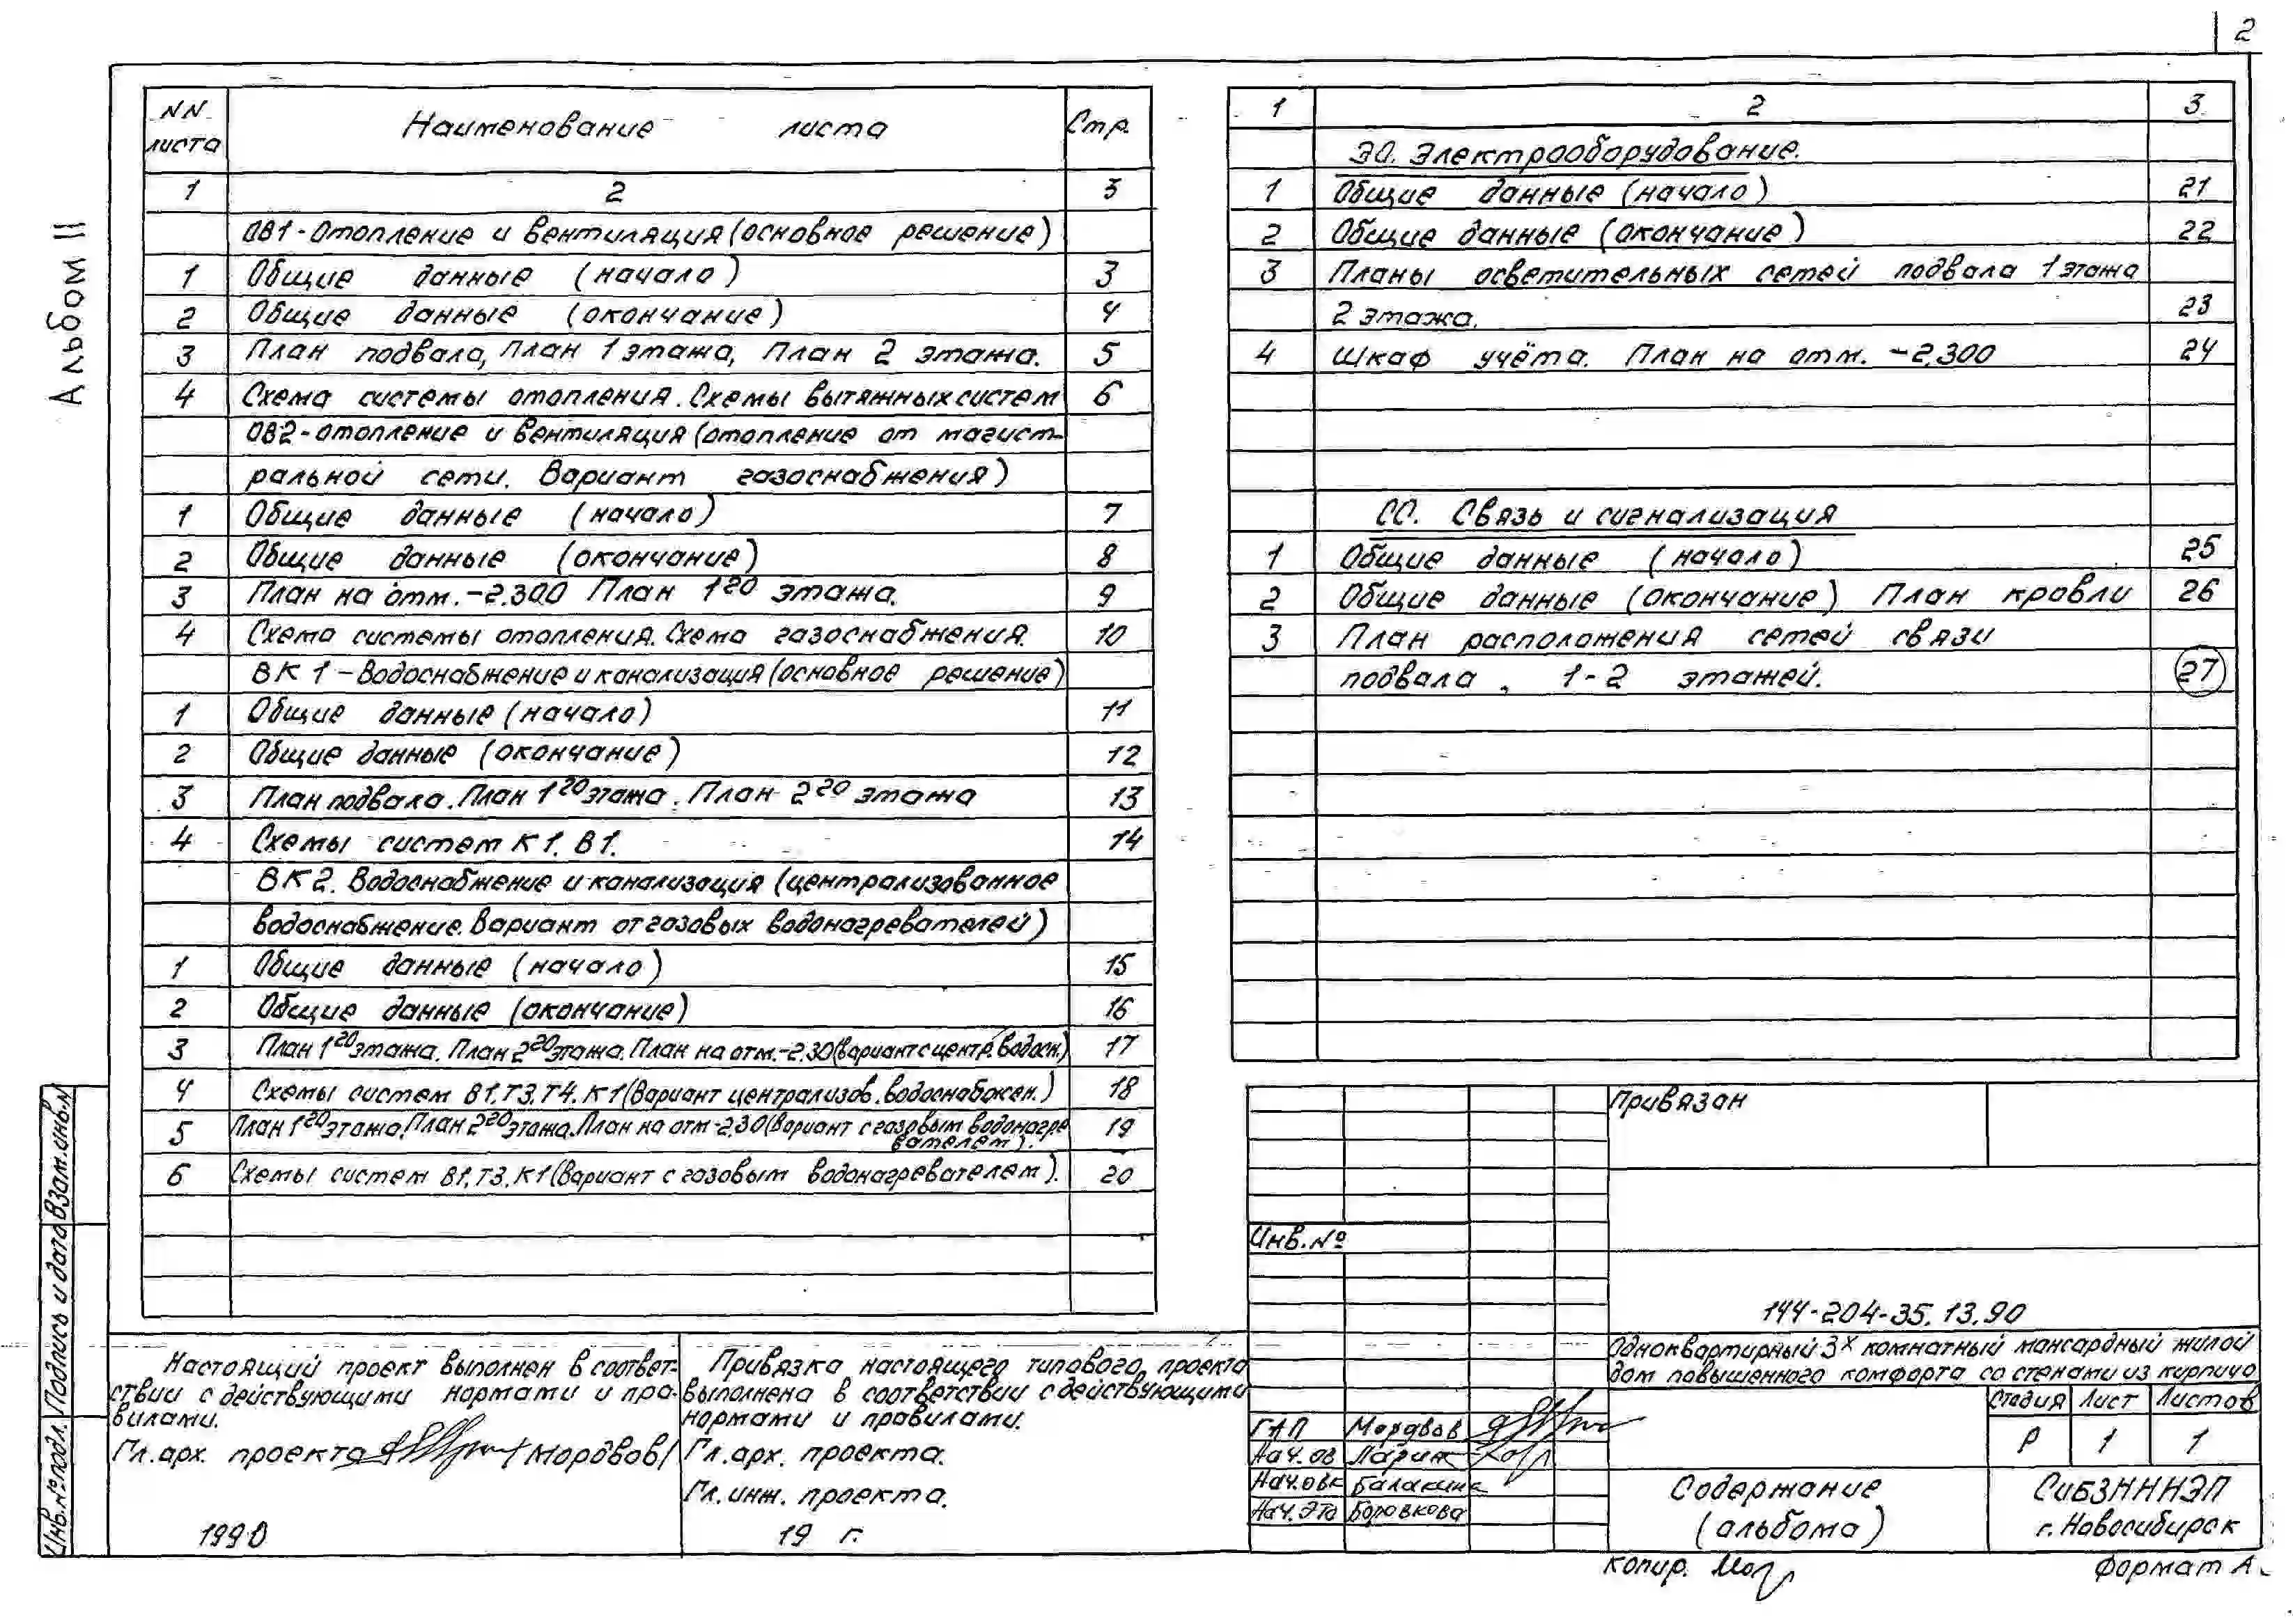 2
Альбом II
NN листа Наименование листа Стр.
1 2 3
ОВ1-Отопление и вентиляция (основное решение)
1 Общие данные (начало) 3
2 Общие данные (окончание) 4
3 План подвала, План 1 этажа, План 2 этажа. 5
4 Схема системы отопления. Схемы вытяжных систем 6
ОВ2-отопление и вентиляция (отопление от магист-
ральной сети. Вариант газоснабжения)
1 Общие данные (начало) 7
2 Общие данные (окончание) 8
3 План на отм.-2.300 План 1го этажа. 9
4 Схема системы отопления. Схема газоснабжения. 10
ВК 1-Водоснабжение и канализация (основное решение)
1 Общие данные (начало) 11
2 Общие данные (окончание) 12
3 План подвала. План 1го этажа. План 2го этажа 13
4 Схемы систем К1. В1. 14
ВК2. Водоснабжение и канализация (централизованное
водоснабжение. Вариант от газовых водонагревателей)
1 Общие данные (начало) 15
2 Общие данные (окончание) 16
3 План 1го этажа. План 2го этажа. План на отм.-2.30 (вариант с центр. водосн.) 17
4 Схемы систем В1.Т3.Т4.К1 (Вариант централизов. водоснабжен.) 18
5 План 1го этажа. План 2го этажа. План на отм-2.30 (вариант с газовым водонагре
вателем). 19
6 Схемы систем В1.Т3.К1 (Вариант с газовым водонагревателем). 20
1 2 3
ЭО. Электрооборудование.
1 Общие данные (начало) 21
2 Общие данные (окончание) 22
3 Планы осветительных сетей подвала 1 этажа
2 этажа. 23
4 Шкаф учёта. План на отм. -2.300 24
СС. Связь и сигнализация
1 Общие данные (начало) 25
2 Общие данные (окончание) План кровли 26
3 План расположения сетей связи
подвала, 1-2 этажей. 27
Инв.№подл. Подпись и дата Взам.инв.N
Настоящий проект выполнен в соответ-
ствии с действующими нормами и пра-
вилами.
Гл.арх. проекта /Мордвов/
1990
Привязка настоящего типового проекта
выполнена в соответствии с действующими
нормами и правилами.
Гл.арх. проекта.
Гл.инж. проекта.
19 г.
Привязан
Инв.№
144-204-35.13.90
Одноквартирный 3х комнатный мансардный жилой
дом повышенного комфорта со стенами из кирпича
Стадия Лист Листов
Р 1 1
ГАП Мордвов
Нач.ОВ Ларин
Нач.ОВК Балакина
Нач.ЭТО Боровкова
Содержание
(альбома)
СибЗНИИЭП
г.Новосибирск
копир.
Формат А